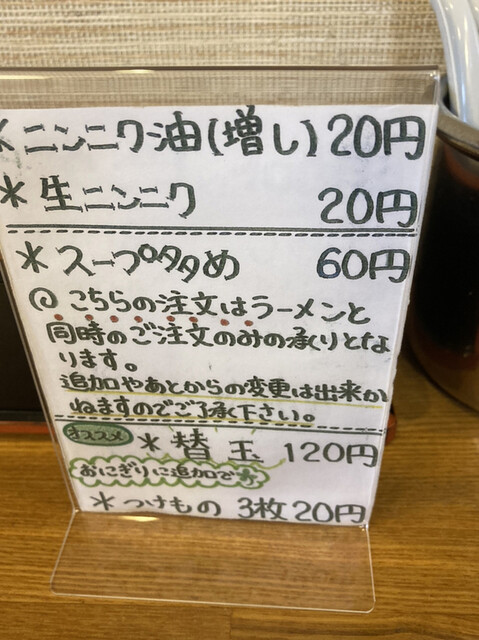 *ニンニク油(増し)20円
*生ニンニク 20円
*スープ夕夕め 60円
◎こちらの注文はラーメンと
同時のご注文のみの承りとな
ります。
追加やあとからの変更は出来か
ねますのでご了承下さい。
オススメ *替玉 120円
おにぎりに追加で
*つけもの 3枚20円